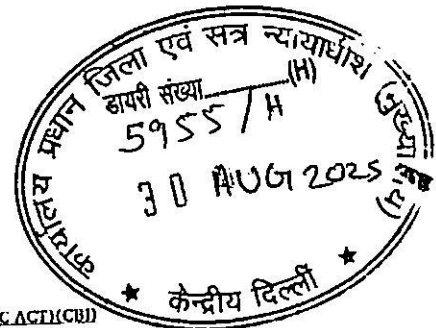 कार्यालय प्रधान जिला एवं सत्र न्यायाधीश (मुख्यालय)
डायरी संख्या (H)
5955/H
30 AUG 2025
★ केन्द्रीय दिल्ली ★
C ACT)(CBI)